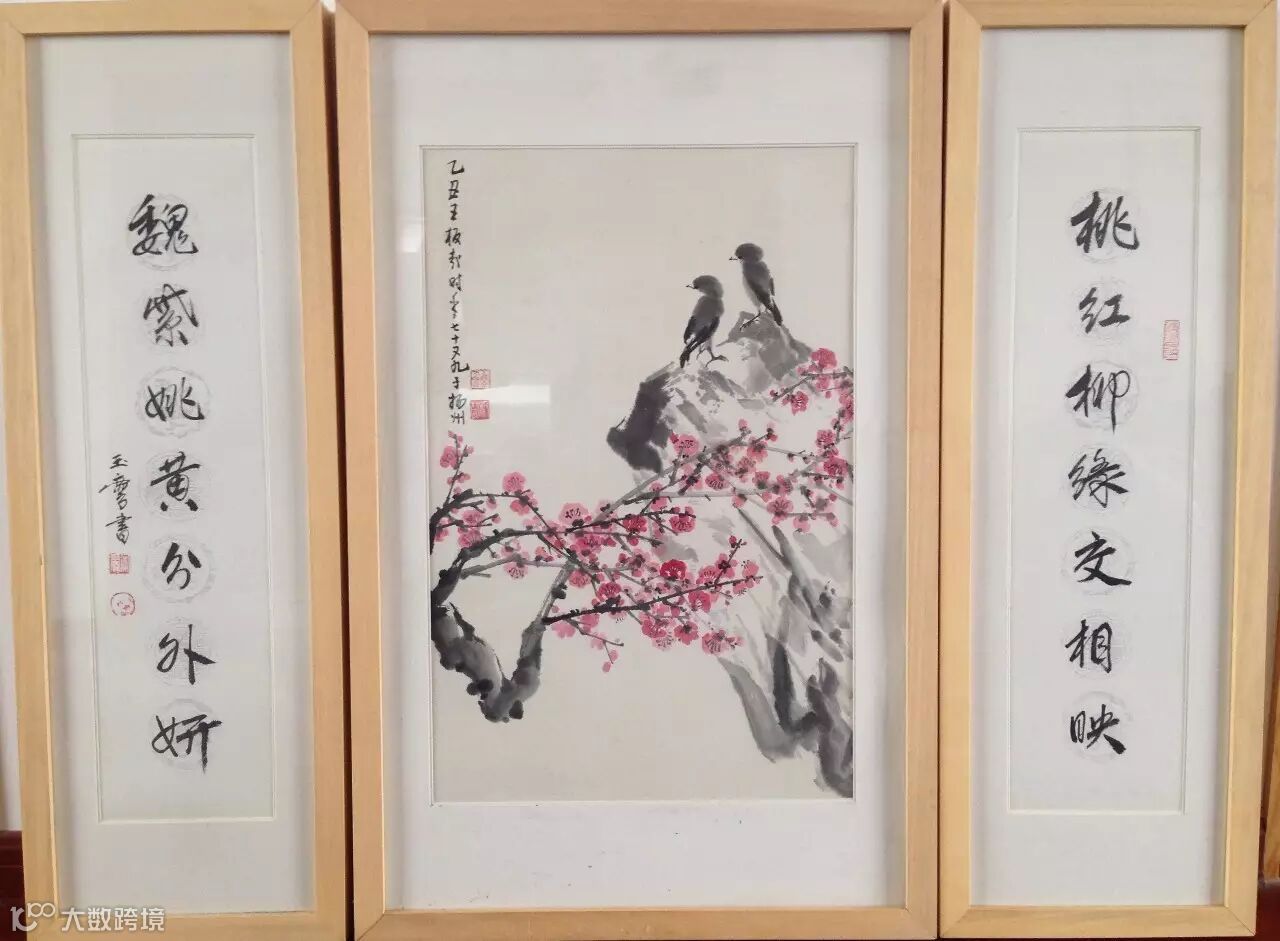 桃红柳绿交相映
乙丑王板哉时年七十又九于扬州
魏紫姚黄分外妍
玉書
大数跨境